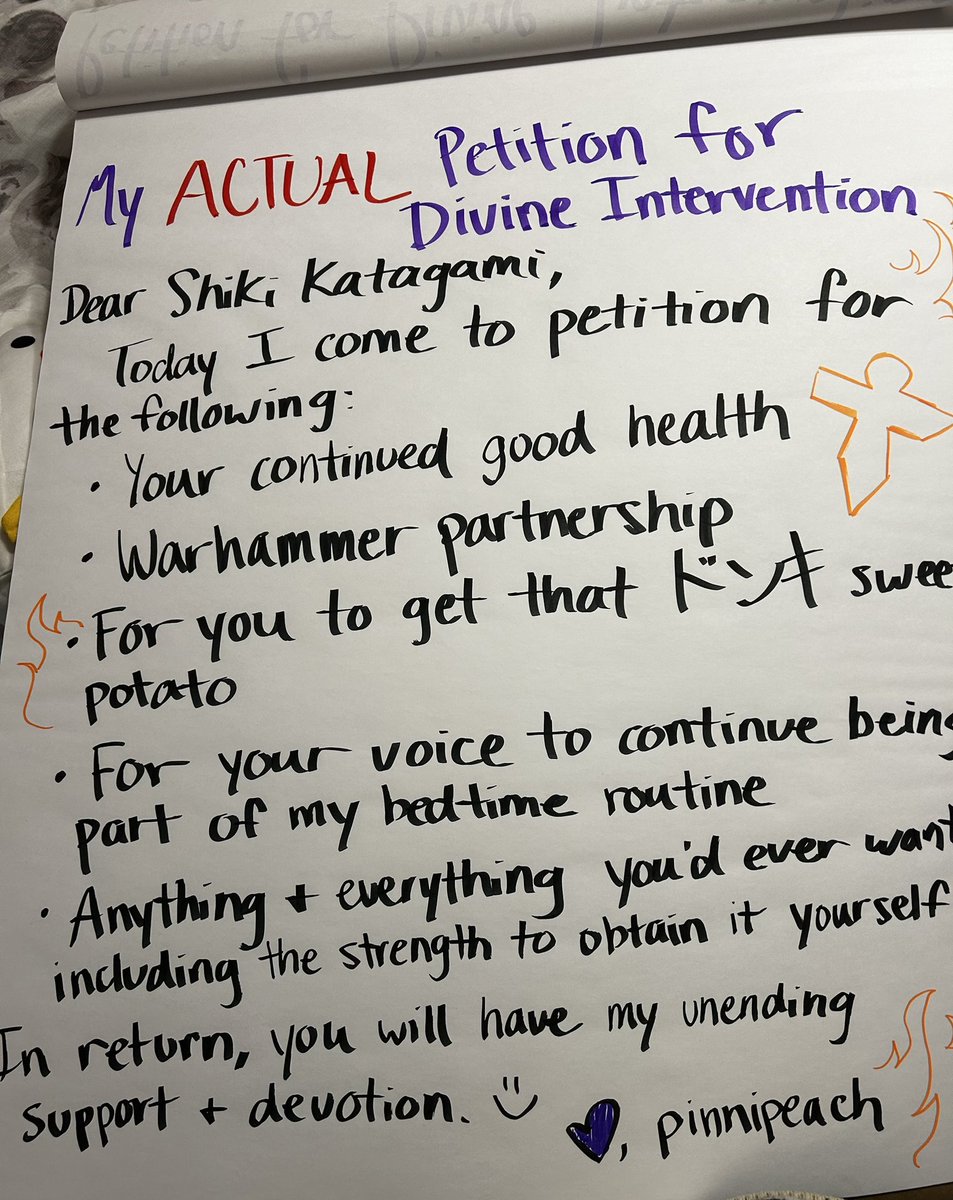 My ACTUAL Petition for
Divine Intervention
Dear Shiki Katagami,
Today I come to petition for
the following:
• Your continued good health
• Warhammer partnership
• For you to get that ドンキ swee
potato
• For your voice to continue being
part of my bedtime routine
• Anything + everything you'd ever want
including the strength to obtain it yourself
In return, you will have my unending
support + devotion. :)
♥, pinnipeach